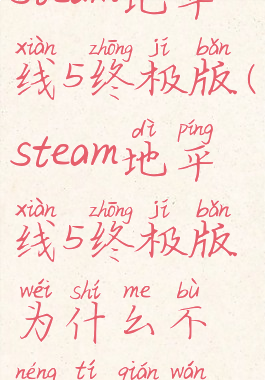 steam地平
xiàn zhōng jí bǎn
线5终极版(
dì píng
steam地平
xiàn zhōng jí bǎn
线5终极版
wéi shí me bù
为什么不
néng tí qián wán